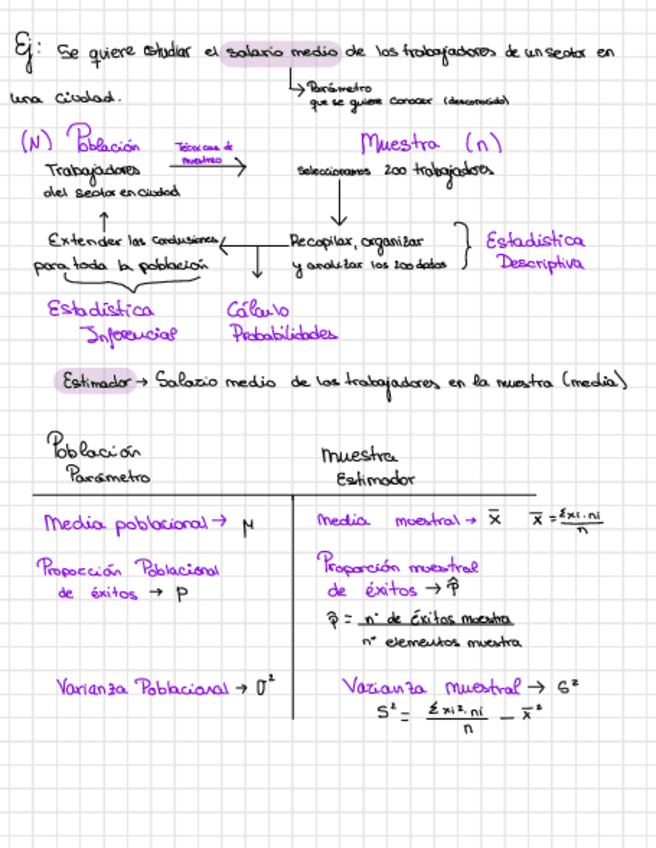 Ej: Se quiere estudiar el salario medio de los trabajadores de un sector en
una ciudad.
↳ Parámetro
que se quiere conocer (desconocido)
(N) Población
Técnicas de
muestreo
Muestra (n)
Trabajadores
del sector en ciudad
Seleccionamos 200 trabajadores
Extender las conclusiones
para toda la población
Recopilar, organizar
y analizar los 200 datos
Estadística
Descriptiva
Estadística
Inferencial
Cálculo
Probabilidades
Estimador → Salario medio de los trabajadores en la muestra (media)
Población
Parámetro
Muestra
Estimador
Media poblacional → μ
Media muestral → x̄ x̄ = Σxi·ni / n
Proporción Poblacional
de éxitos → P
Proporción muestral
de éxitos → p̂
p̂ = nº de éxitos muestra
nº elementos muestra
Varianza Poblacional → σ²
Varianza muestral → S²
S² = Σxi²·ni / n − x̄²